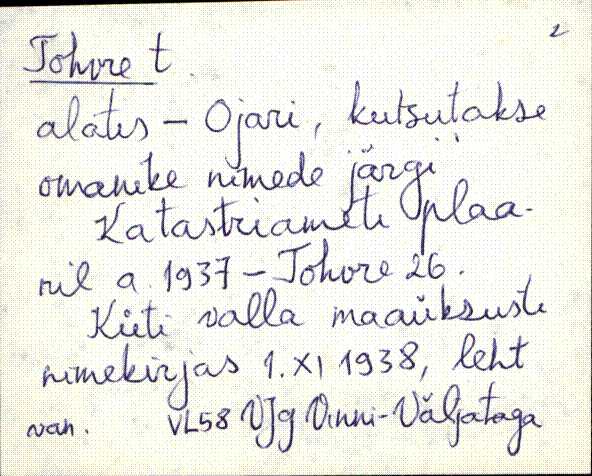 2
Tohvre t.
alates – Ojari, kutsutakse
omanike nimede järgi
Katastriameti plaa-
nil a. 1937 – Tohvre 26.
Küti valla maaüksuste
nimekirjas 1. XI 1938, leht
van. VL58 VJg Vinni-Väljataga